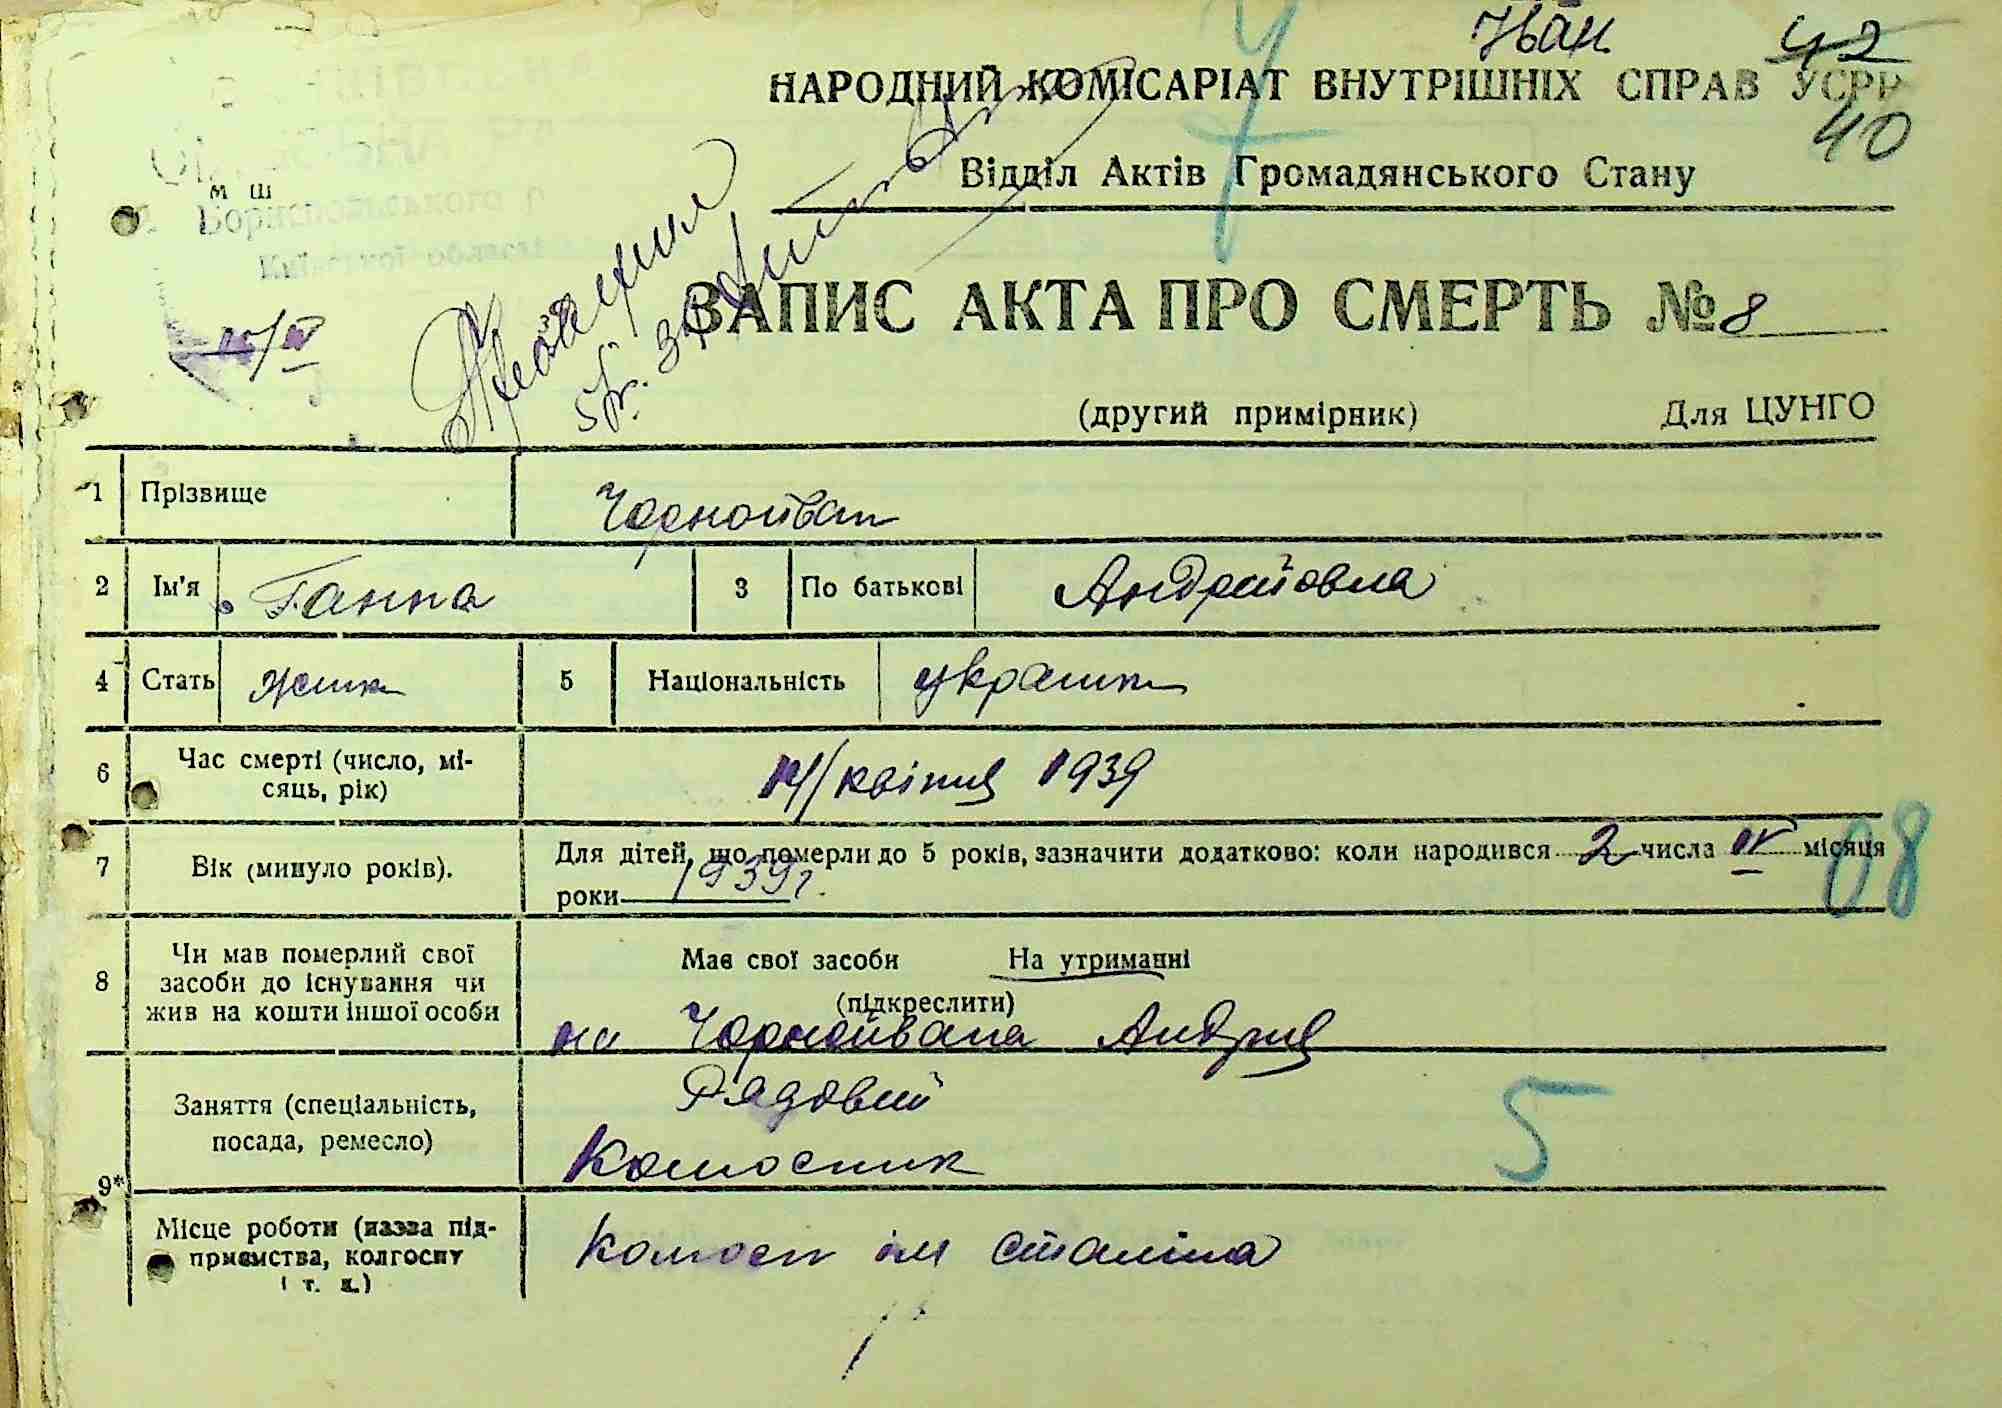 Іван 42
НАРОДНИЙ КОМІСАРІАТ ВНУТРІШНІХ СПРАВ УСРР
40
Відділ Актів Громадянського Стану
м ш
Бориспольського р
Київської області
ЗАПИС АКТА ПРО СМЕРТЬ № 8
(другий примірник) Для ЦУНГО
1 Прізвище Чорнойван
2 Ім'я Ганна 3 По батькові Андрейовна
4 Стать жінк 5 Національність українк
6 Час смерті (число, мі-
сяць, рік) 14/квітня 1939
7 Вік (минуло років). Для дітей, що померли до 5 років, зазначити додатково: коли народився 2 числа IV місяця
роки 1939 г.
08
8 Чи мав померлий свої
засоби до існування чи
жив на кошти іншої особи
Має свої засоби На утриманні
(підкреслити)
на Чорнойвана Андрія
9* Заняття (спеціальність,
посада, ремесло)
Рядовий
Колгосник
5
Місце роботи (назва під-
приємства, колгоспу
і т. д.)
Колгосп ім Сталіна